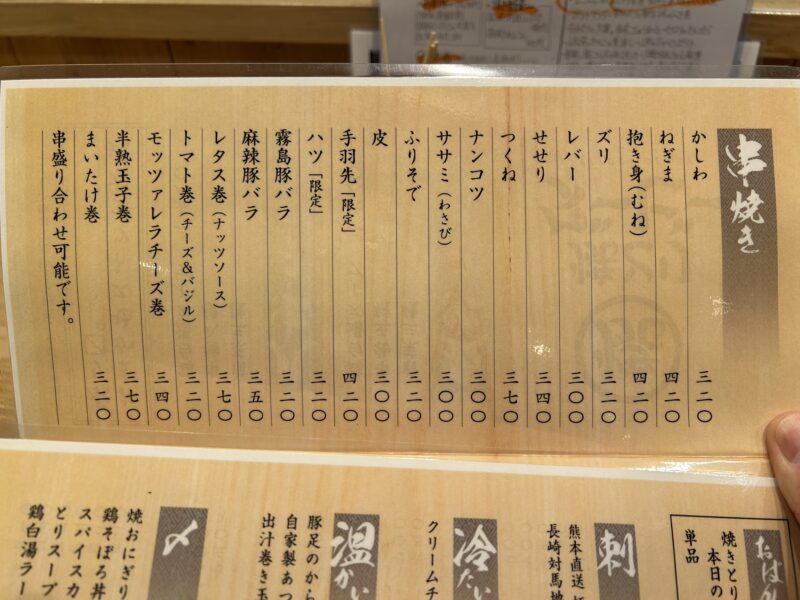 串焼き
かしわ 三二〇
ねぎま 四二〇
抱き身(むね) 四二〇
ズリ 三二〇
レバー 三〇〇
せせり 三四〇
つくね 三七〇
ナンコツ 三〇〇
ササミ(わさび) 三〇〇
ふりそで 三二〇
皮 三〇〇
手羽先「限定」 四二〇
ハツ「限定」 三二〇
霧島豚バラ 三二〇
麻辣豚バラ 三五〇
レタス巻(ナッツソース) 三七〇
トマト巻(チーズ&バジル) 三二〇
モッツァレラチーズ巻 三四〇
半熟玉子巻 三七〇
まいたけ巻 三二〇
串盛り合わせ可能です。
おば
焼きとり
本日の
単品
刺
熊本直送
長崎対馬地
冷たい
クリームチ
温かい
豚足のから
自家製あつ
出汁巻き玉
〆
焼おにぎり
鶏そぼろ丼
スパイスカ
とりスープ
鶏白湯ラー